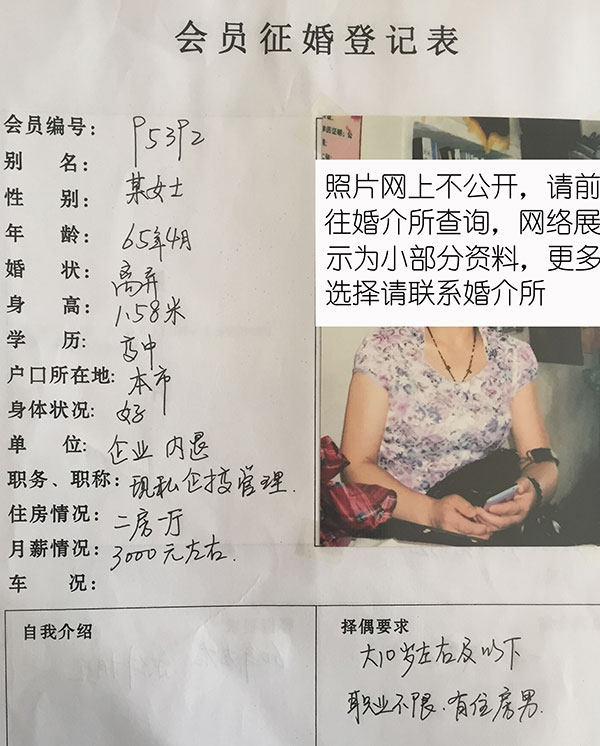 会员征婚登记表
会员编号: P5392
别 名: 某女士
性 别:
年 龄: 65年4月
婚 状: 离异
身 高: 1.58米
学 历: 高中
户口所在地: 本市
身体状况: 好
单 位: 企业 内退
职务、职称: 现私企搞管理.
住房情况: 二房一厅
月薪情况: 3000元左右.
车 况:
照片网上不公开，请前
往婚介所查询，网络展
示为小部分资料，更多
选择请联系婚介所
自我介绍
择偶要求
大10岁左右及以下
职业不限.有住房男.